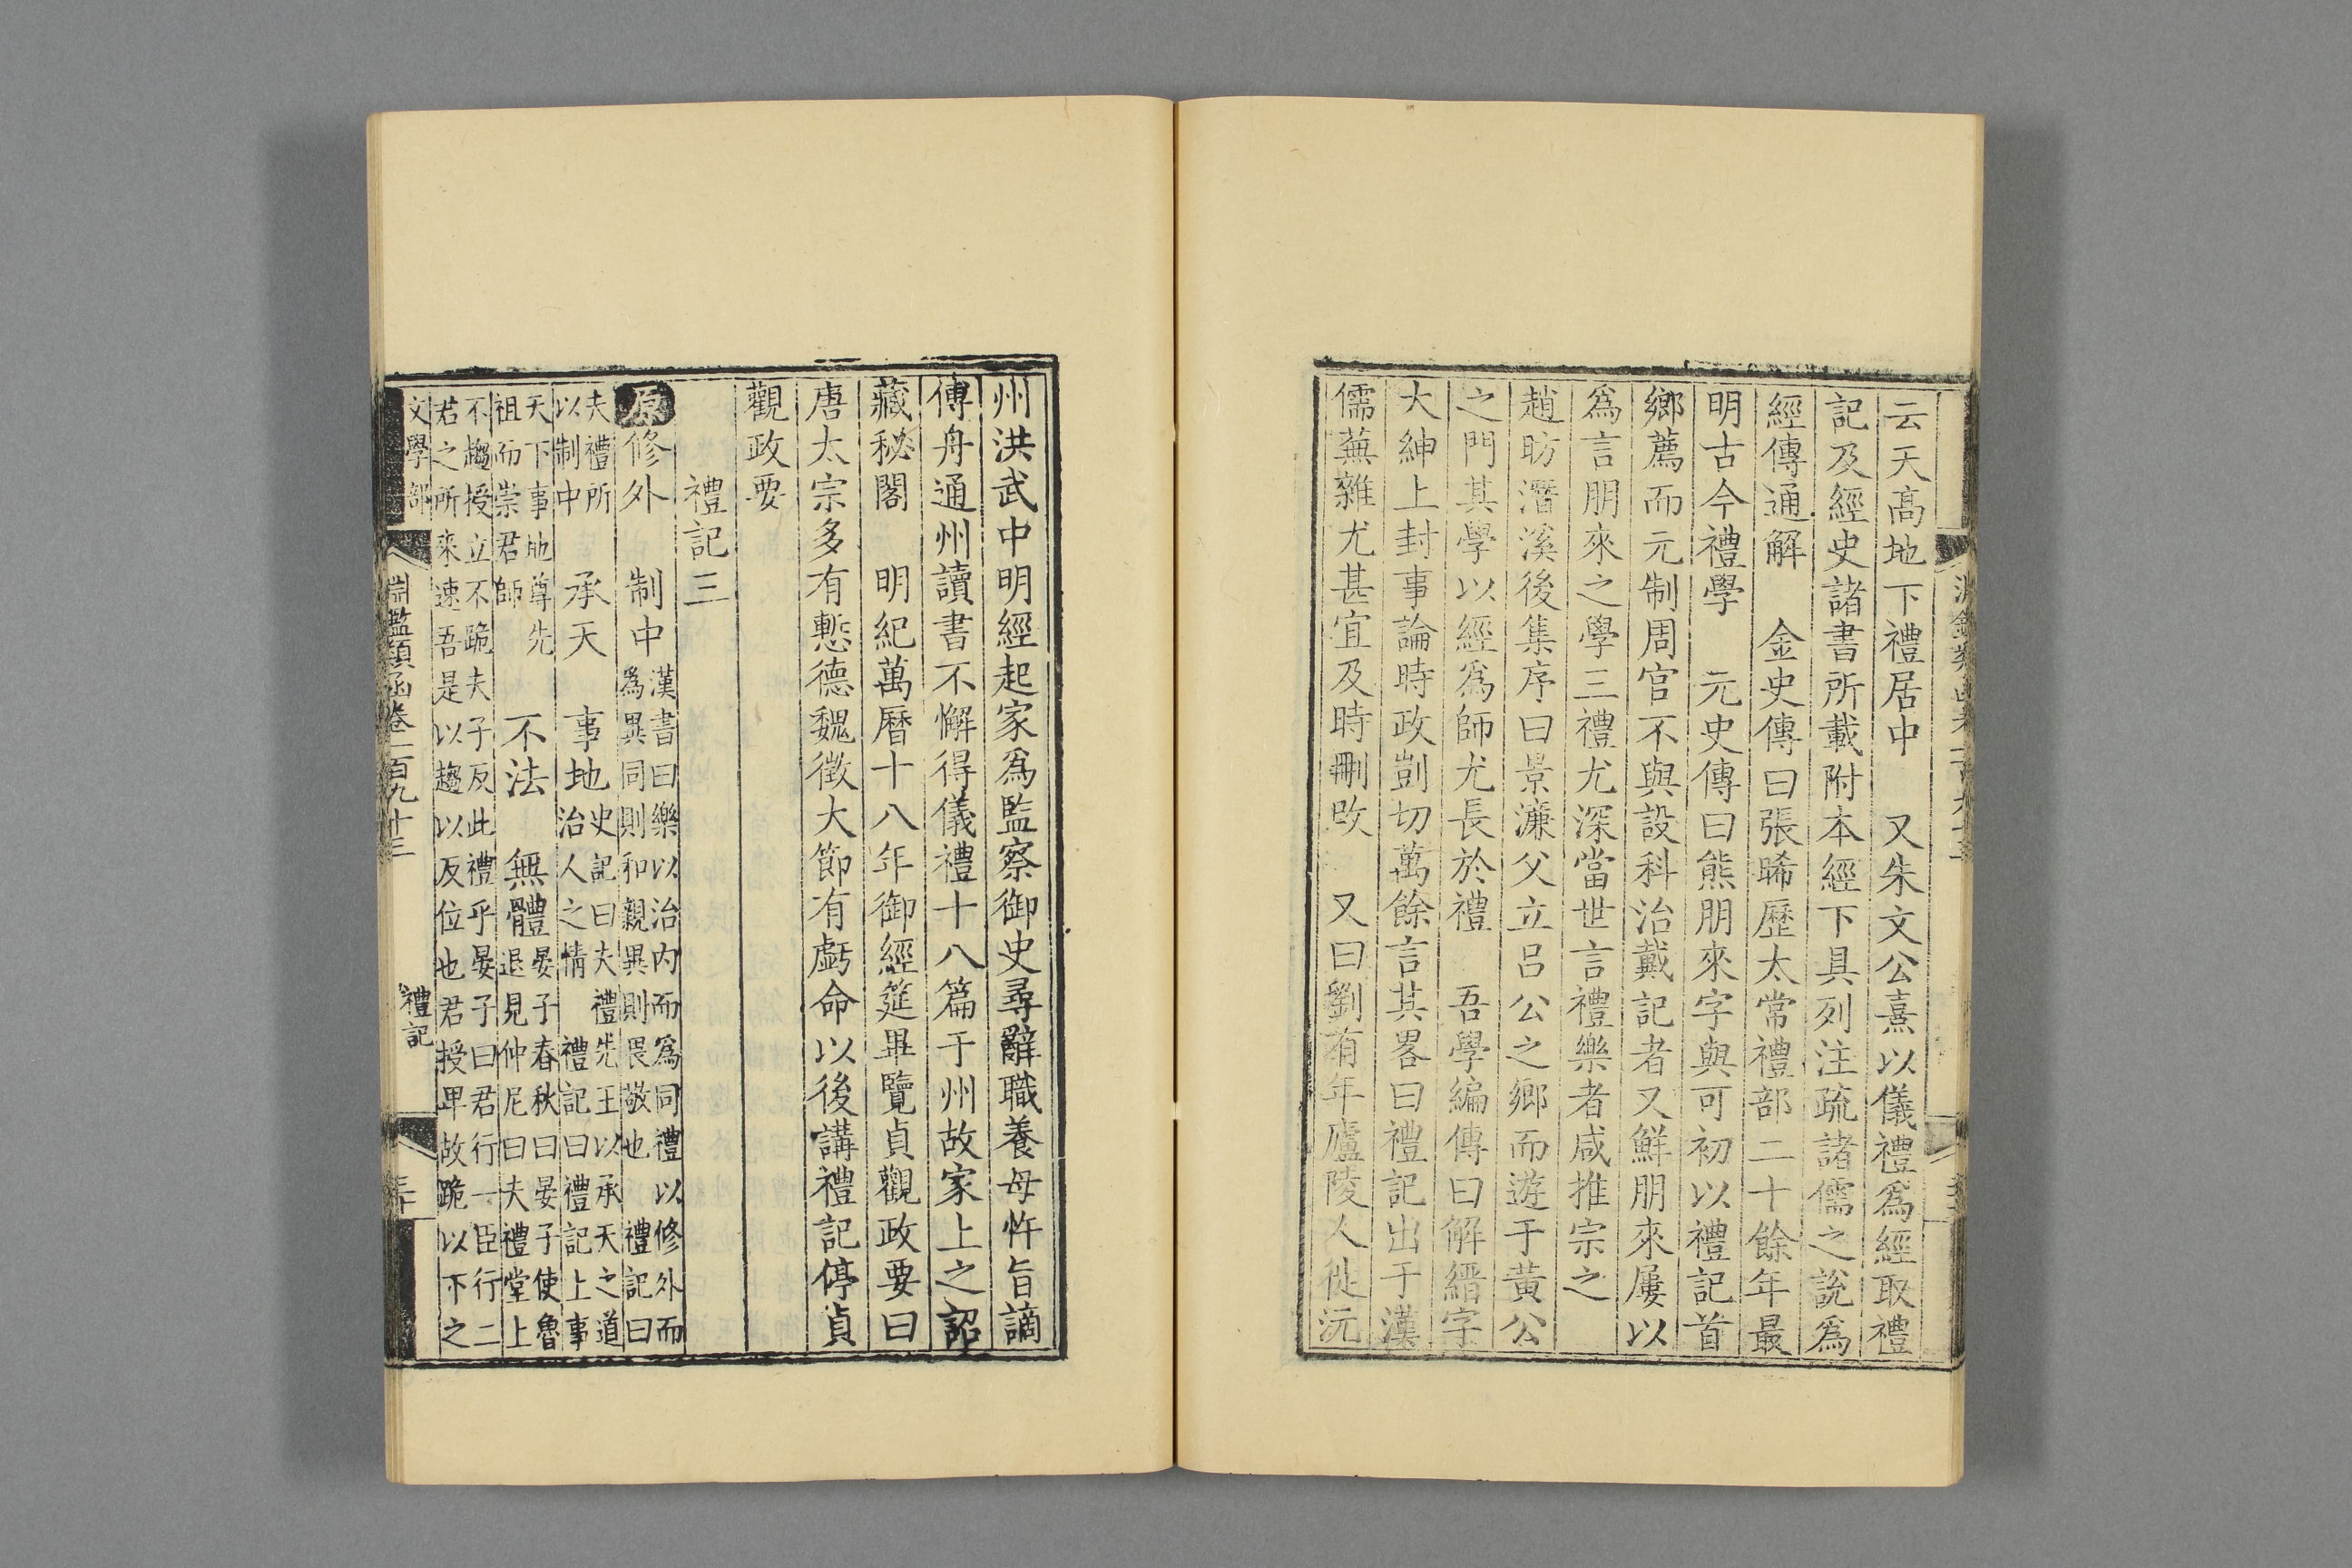 云天高地下禮居中　又朱文公熹以儀禮爲經取禮
記及經史諸書所載附本經下具列注疏諸儒之說爲
經傳通解　金史傳曰張暐歷太常禮部二十餘年最
明古今禮學　元史傳曰熊朋來字與可初以禮記首
鄉薦而元制周官不與設科治戴記者又鮮朋來屢以
爲言朋來之學三禮尤深當世言禮樂者咸推宗之
趙昉潛溪後集序曰景濂父立呂公之鄉而遊于黄公
之門其學以經爲師尤長於禮　吾學編傳曰解縉字
大紳上封事論時政剴切萬餘言其畧曰禮記出于漢
儒蕪雜尤甚宜及時刪改　又曰劉有年廬陵人徙沅
州洪武中明經起家爲監察御史尋辭職養母忤旨謫
傅舟通州讀書不懈得儀禮十八篇于州故家上之詔
藏秘閣　明紀萬曆十八年御經筵畢覽貞觀政要曰
唐太宗多有慙德魏徵大節有虧命以後講禮記停貞
觀政要
禮記三
原修外　制中漢書曰樂以治内而爲同禮以修外而
爲異同則和親異則畏敬也　禮記曰
夫禮所
以制中　承天　事地史記曰夫禮先王以承天之道
治人之情　禮記曰禮記上事
天下事地尊先
祖而崇君師　不法　無體晏子春秋曰晏子使魯
退見仲尼曰夫禮堂上
不趨授立不跪夫子反此禮乎晏子曰君行一臣行二
君之所來速吾是以趨以反位也君授卑故跪以下之
文學部　淵鑑類函卷一百九十三　禮記　三十